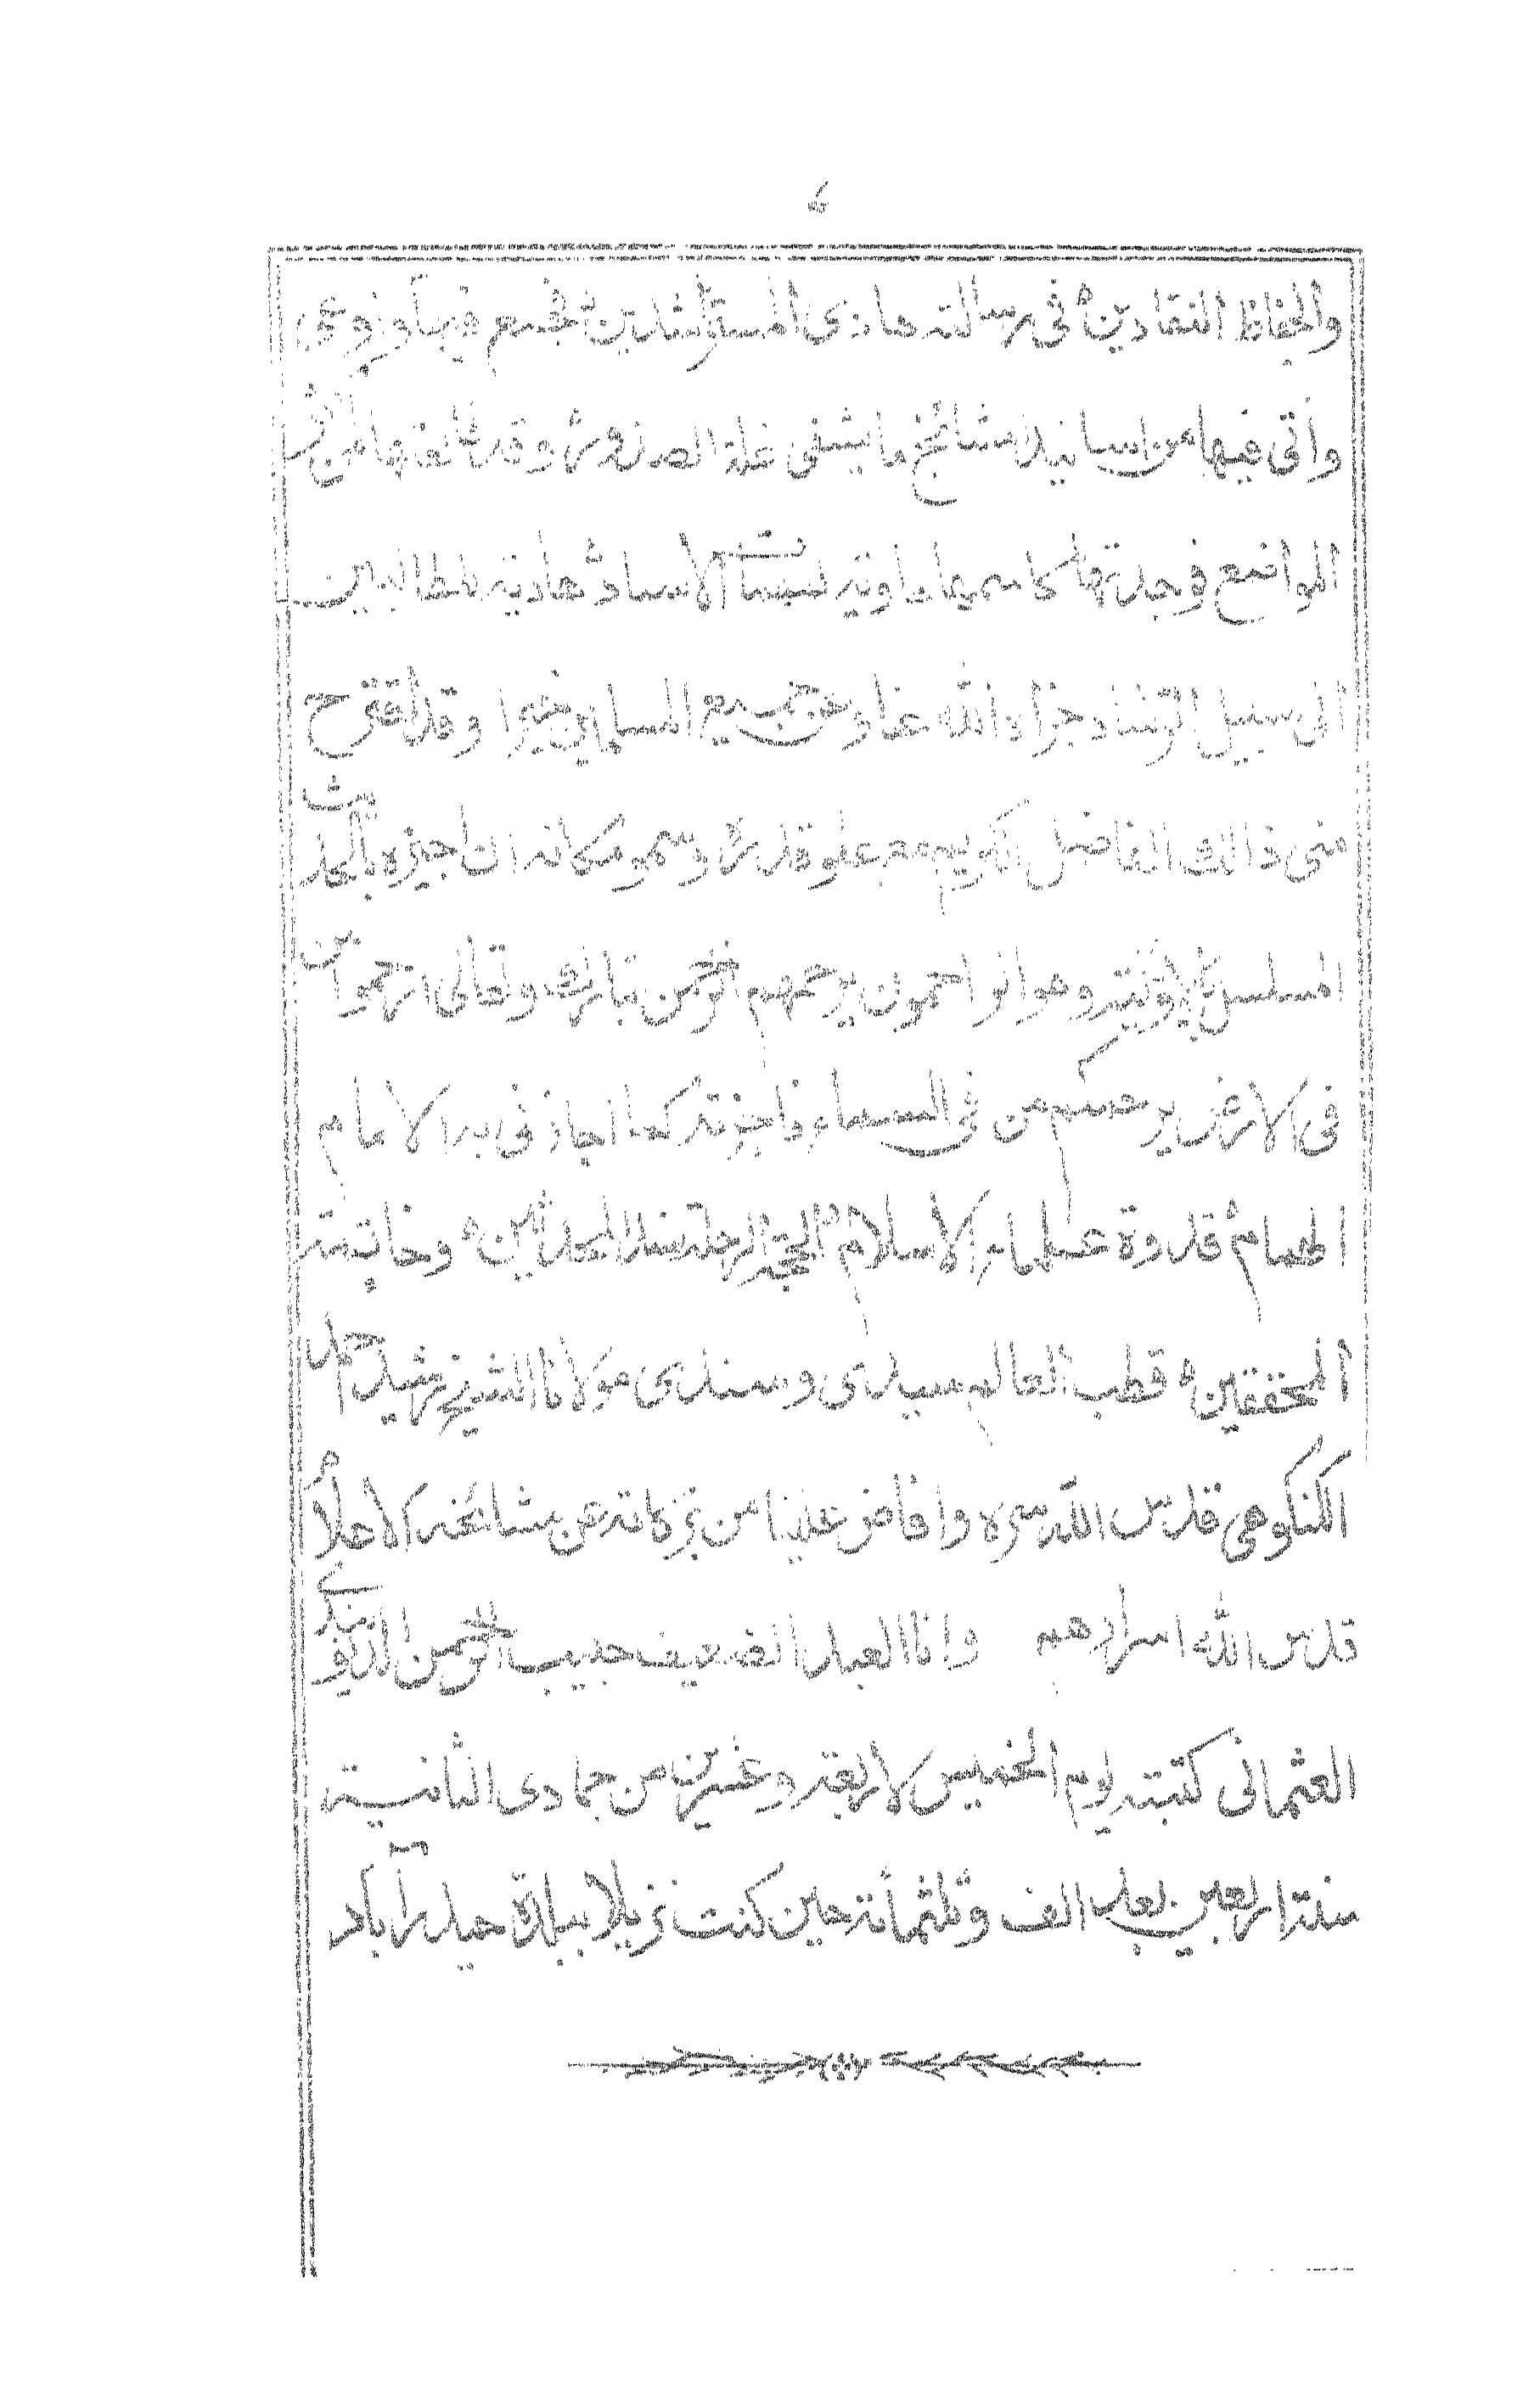 والحفاظ النقادين في رسالته هادي المسترشدين فجمع فيها وروعى
واتى فيها من اسانيد المشائخ ما يشفى غلة الصدور وقد طالعتها من اكثر
المواضع فوجدتها كاسمها حاوية لشتات الاسناد هادية للطالبين
الى سبيل الرشاد جزاه الله عنا وعن جميع المسلمين خيرا وقد اقترح
منى ذالك الفاضل الكريم مع علو قدره وسمو مكانه ان اجيزه بالحديث
المسلسل بالاولية وهو الراحمون يرحمهم الرحمن تبارك وتعالى ارحموا من
فى الارض يرحمكم من فى السماء فاجزته كما اجازنى به الامام
الهمام قدوة علماء الاسلام الحجة الرحلة سند المحدثين وخاتمة
المحققين قطب العالم سيدى وسندى مولانا الشيخ رشيد احمد
الكنكوهى قدس الله سره وافاض علينا من بركاته عن مشائخه الاعلام
قدس الله اسرارهم وانا العبد الضعيف حبيب الرحمن الديوبندى
العثمانى كتبته يوم الخميس لاربعة وعشرين من جمادى الثانية
سنة اربعين بعد الف وثلثمائة حين كنت نزيلا ببلدة حيدرآباد